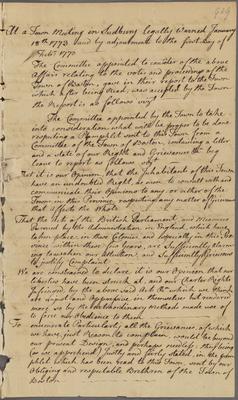 At a Town Meeting in Sudbury legally warned January
18th 1773 and by adjournment to the first day of
Feby 1773
The Committee appointed to consider of the above
affair relating to the votes and proceedings of the
Town of Boston, gave in their report to the Town
which after being read, was accepted by the Town
the Report is as follows viz
The Committee appointed by the Town to take
into consideration what will be proper to be done
respecting a Pamphlet sent to this Town from a
Committee of the Town of Boston, containing a letter
and a state of our Rights and Grievances &c beg
leave to report as follows viz
That it is our Opinion, that the Inhabitants of this Town
have an undoubted Right as men to consult with and
communicate their Opinions to any or either of the
Towns in this Province respecting any matter of Grievance
that affects the whole
That the Acts of the British Parliament, and Measures
Pursued by the Administration in England, which have
taken place in these Colonies and especially in this Pro
vince within these few Years, are sufficiently alarm
ing to awaken our attention, and sufficiently Grievous
to justify Complaint
We are constrained to declare, it is our Opinion that our
Liberties have been struck at, and our Charter Rights
Infringed, by the above said Acts &c which we think
are unjust and Oppressive in themselves but rendered
more so by the extraordinary methods made use of
to force our obedience to them
To enumerate Particularly, all the Grievances of which
we have just Reason to complain, would be beyond
our present Design, and perhaps needless, they being
(as we apprehend) justly and fairly stated, in the pam
phlet which has been read to this Town, sent by our
Obliging and respectable Brethren of the Town of
Boston